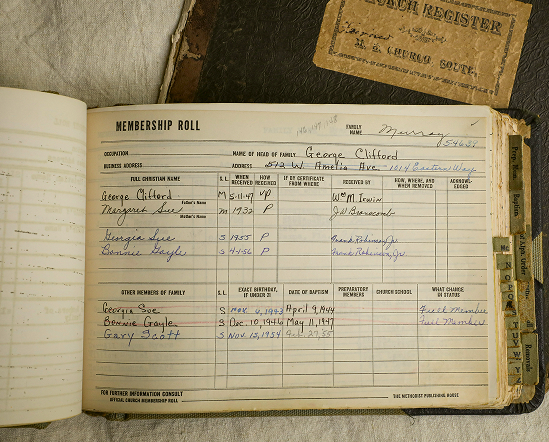 CHURCH REGISTER
M. E. CHURCH SOUTH.
MEMBERSHIP ROLL
FAMILY NAME Murray
54628
OCCUPATION
NAME OF HEAD OF FAMILY George Clifford
BUSINESS ADDRESS
ADDRESS 512 W. Amelia Ave. 1014 Eastern Way
FULL CHRISTIAN NAME S. L. WHEN RECEIVED HOW RECEIVED IF BY CERTIFICATE FROM WHERE RECEIVED BY HOW, WHERE, AND WHEN REMOVED ACKNOWLEDGED
George Clifford M 5-11-47 VP Wm M Irwin
Father's Name
Margaret Sue M 1933 P J.W. Branscomb
Mother's Name
Georgia Sue S 1955 P Frank Robinson, Jr.
Bonnie Gayle S 4-1-56 P Frank Robinson, Jr.
OTHER MEMBERS OF FAMILY S. L. EXACT BIRTHDAY, IF UNDER 21 DATE OF BAPTISM PREPARATORY MEMBERS CHURCH SCHOOL WHAT CHANGE IN STATUS
Georgia Sue S 1943 April 9, 1944 Full Member
Bonnie Gayle S Dec. 10, 1946 May 11, 1947 Full Member
Gary Scott S Nov. 12, 1954
FOR FURTHER INFORMATION CONSULT
OFFICIAL CHURCH MEMBERSHIP ROLL
THE METHODIST PUBLISHING HOUSE
Baptisms
Removals